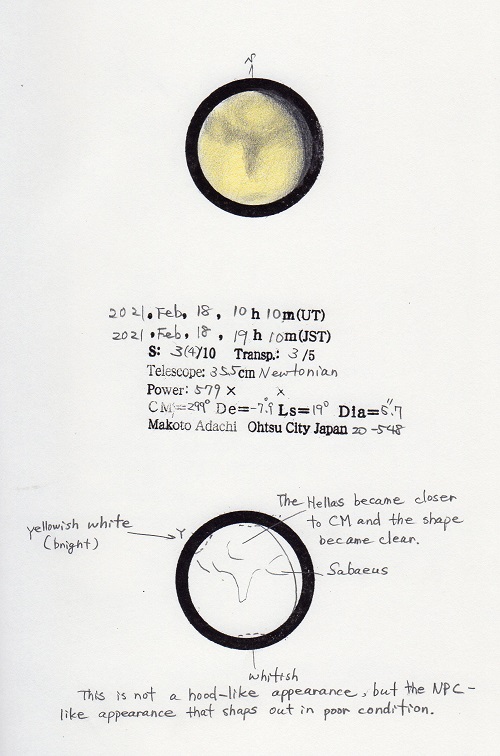 S
2021. Feb. 18, 10h 10m(UT)
2021. Feb. 18, 19h 10m(JST)
S: 3(4)/10 Transp.: 3/5
Telescope: 355cm Newtonian
Power: 579 × ×
CM=299° De=-7.9° Ls=19° Dia=6".7
Makoto Adachi Ohtsu City Japan 20-548
The Hellas became closer
to CM and the shape
became clear.
yellowish white
(bright)
Y
Sabaeus
whitish
This is not a hood-like appearance, but the NPC-
like appearance that shaps out in poor condition.